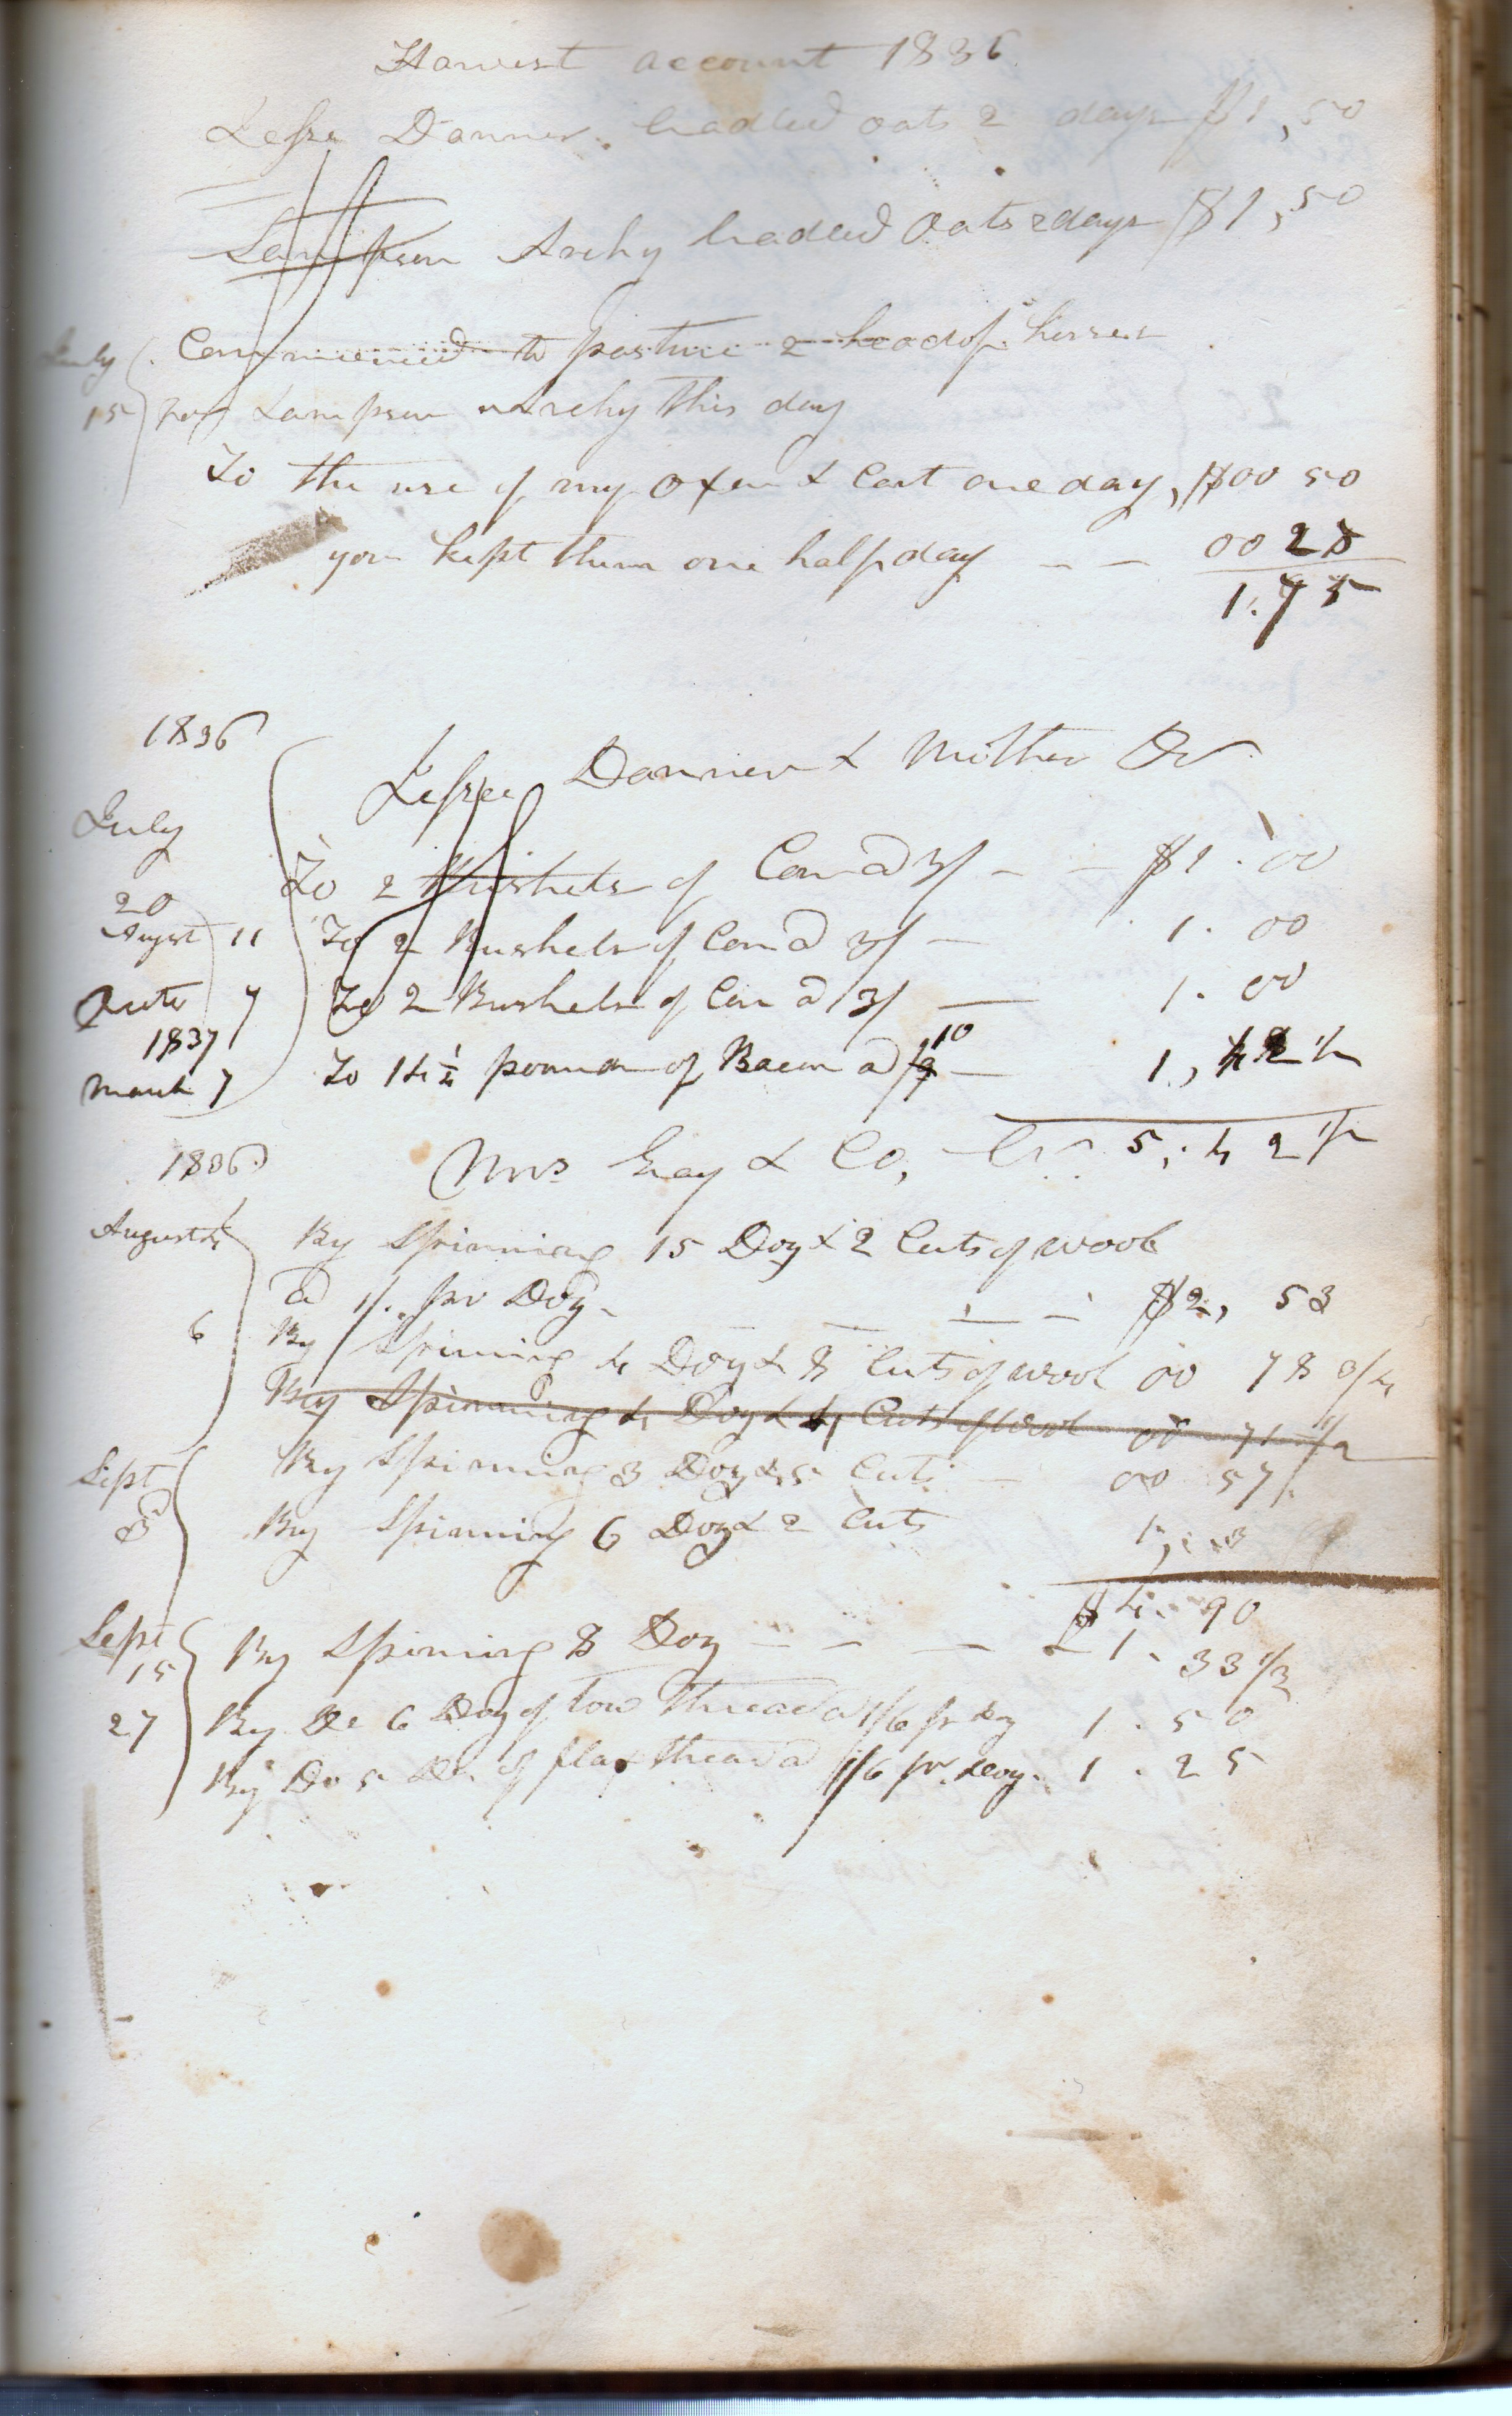 Harvest account 1836
Jesse Danner cradled oats 2 days $1,50
Sampson Archy cradled oats 2 days $1,50
July Commenced to pasture 2 head of horses
15 for Sampson Archy this day
To the use of my Oxen & Cart one day, $00 50
you kept them one half day - - 00 25
1.75
1836
Jesse Danner & Mother Dr
July
20 To 2 Bushels of Corn @ 3/ - - $1.00
August 11 To 2 Bushels of Corn @ 3/ - 1.00
Octo 7 To 2 Bushels of Corn @ 3/ — 1.00
1837
March 7 To 14 1/4 pounds of Bacon @ 10 — 1,42 1/2
1836 Mrs Gray & Co, Cr. 5,42 1/2
August By Spinning 15 Doz & 2 Cuts of wool
@ 1/. pr Doz - — — - $2, 53
6 By Spinning 4 Doz & 8 Cuts of wool 00 78 3/4
By Spinning 4 Doz & 4 Cuts of Wool 00 71 1/2
Sept By Spinning 3 Doz & 5 Cuts - 00 57
3 By Spinning 6 Doz & 2 Cuts 1, 3
$4. 90
Sept 15 By Spinning 8 Doz - - - 1. 33 1/3
27 By Do 6 Doz of Tow Thread @ 1/6 pr Doz 1.50
By Do 5 Do. of flax thread @ 1/6 pr. doz. 1.25